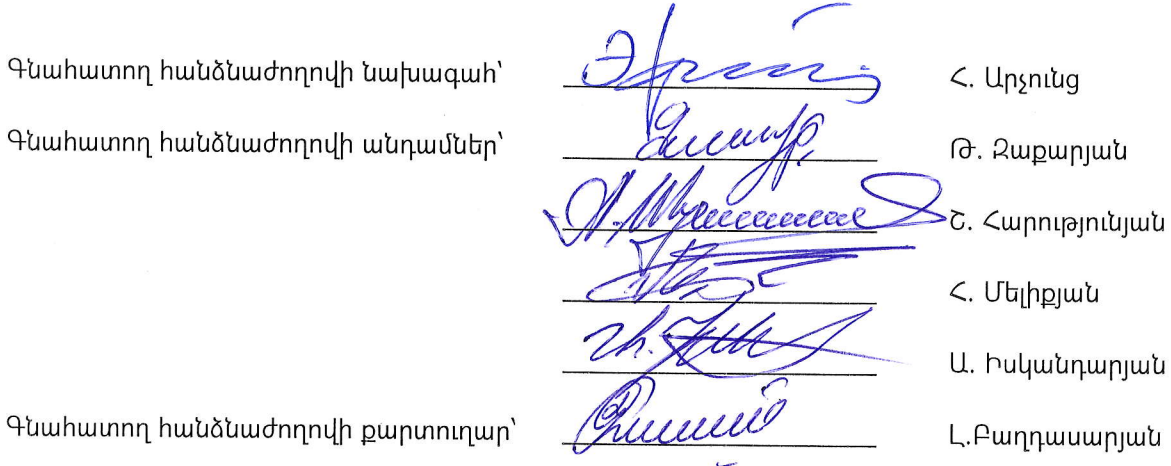 Գնահատող հանձնաժողովի նախագահ՝ Հ. Արչունց
Գնահատող հանձնաժողովի անդամներ՝ Թ. Զաքարյան
Շ. Հարությունյան
Հ. Մելիքյան
Ա. Իսկանդարյան
Գնահատող հանձնաժողովի քարտուղար՝ Լ.Բաղդասարյան